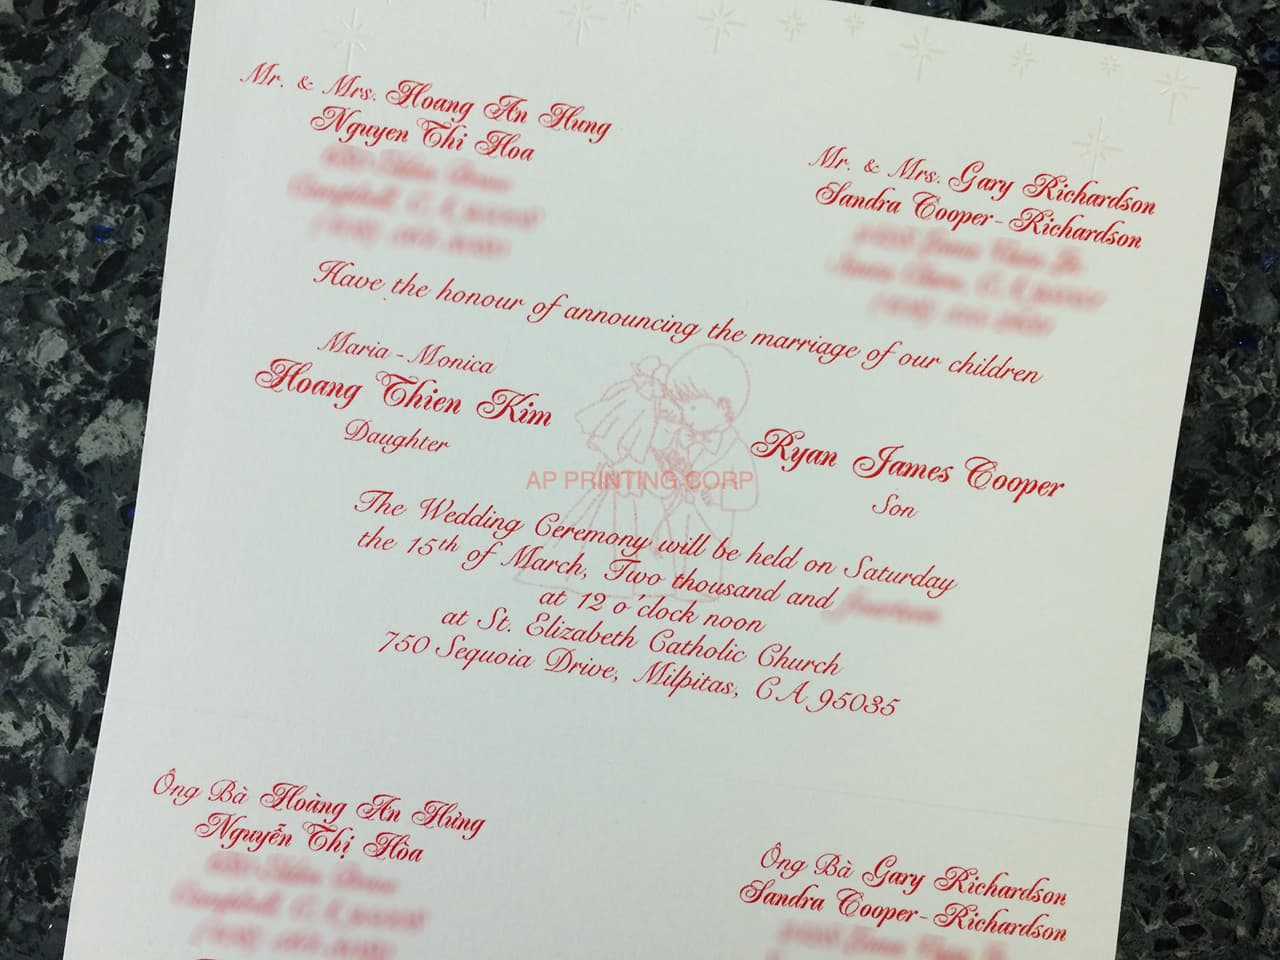 Mr. & Mrs. Hoang An Hung
Nguyen Thi Hoa
Mr. & Mrs. Gary Richardson
Sandra Cooper-Richardson
Have the honour of announcing the marriage of our children
Maria - Monica
Hoang Thien Kim
Daughter
Ryan James Cooper
Son
AP PRINTING CORP
The Wedding Ceremony will be held on Saturday
the 15th of March, Two thousand and
at 12 o'clock noon
at St. Elizabeth Catholic Church
750 Sequoia Drive, Milpitas, CA 95035
Ông Bà Hoàng An Hưng
Nguyễn Thị Hòa
Ông Bà Gary Richardson
Sandra Cooper-Richardson